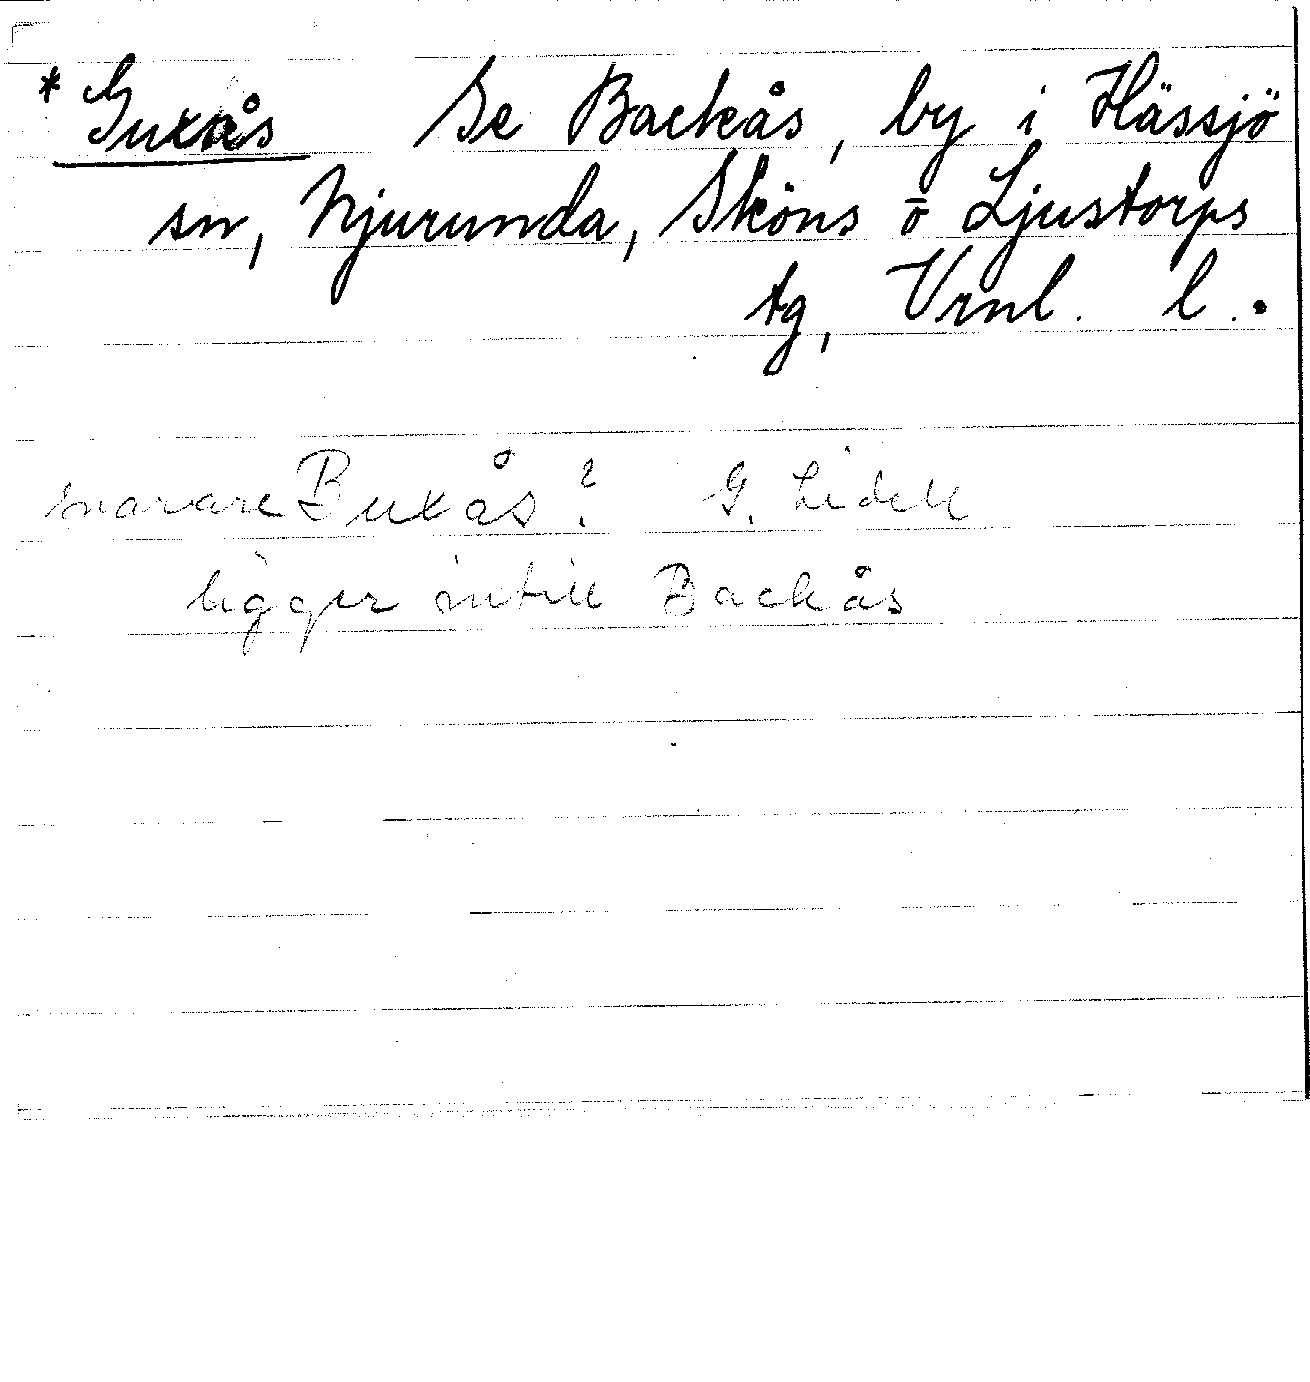 * Guxås Se Backås, by i Hässjö
sn, Njurunda, Sköns o Ljustorps
tg, Vrnl. l.
snarare Buxås? G. Lidell
ligger intill Backås